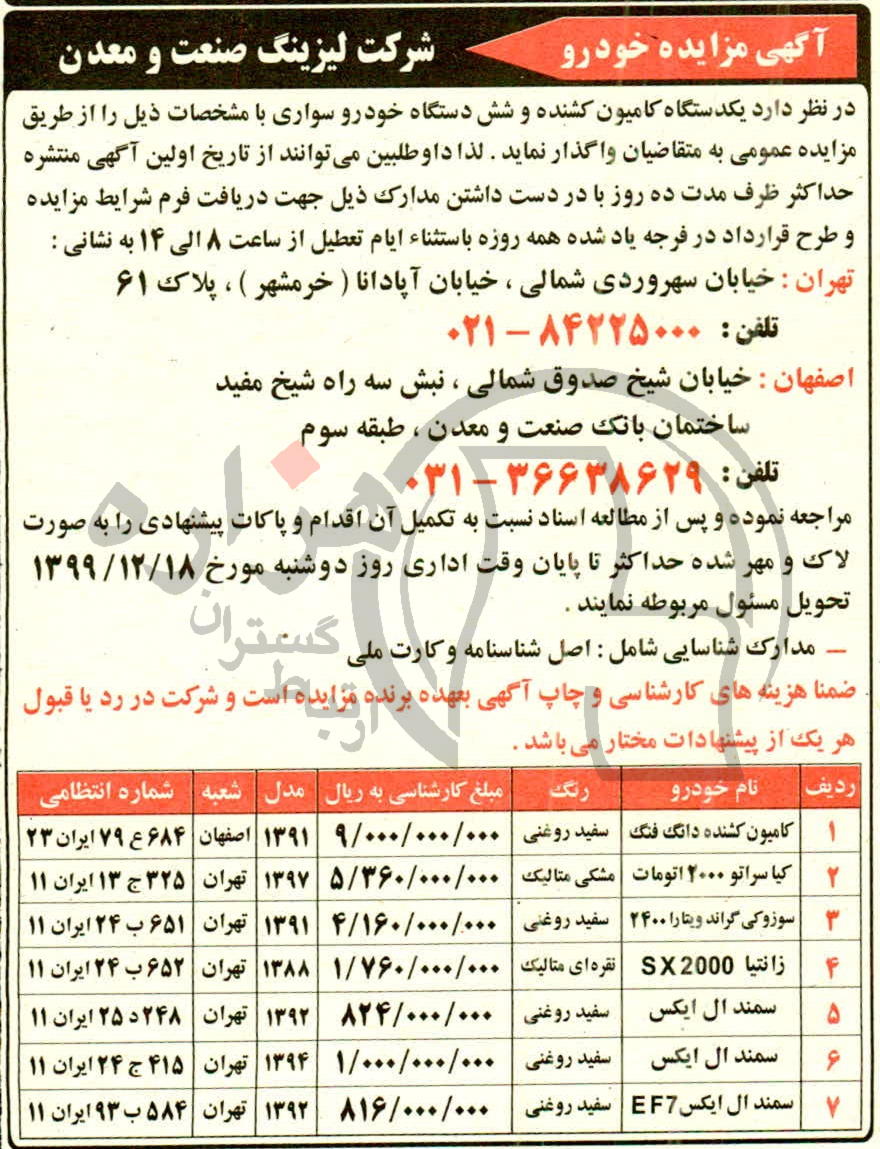 آگهی مزایده خودرو شرکت لیزینگ صنعت و معدن
در نظر دارد یکدستگاه کامیون کشنده و شش دستگاه خودرو سواری با مشخصات ذیل را از طریق
مزایده عمومی به متقاضیان واگذار نماید . لذا داوطلبین می‌توانند از تاریخ اولین آگهی منتشره
حداکثر ظرف مدت ده روز با در دست داشتن مدارک ذیل جهت دریافت فرم شرایط مزایده
و طرح قرارداد در فرجه یاد شده همه روزه باستثناء ایام تعطیل از ساعت ۸ الی ۱۴ به نشانی :
تهران : خیابان سهروردی شمالی ، خیابان آپادانا ( خرمشهر ) ، پلاک ۶۱
تلفن : ۸۴۲۲۵۰۰۰ – ۰۲۱
اصفهان : خیابان شیخ صدوق شمالی ، نبش سه راه شیخ مفید
ساختمان بانک صنعت و معدن ، طبقه سوم
تلفن : ۳۶۶۳۸۶۲۹ – ۰۳۱
مراجعه نموده و پس از مطالعه اسناد نسبت به تکمیل آن اقدام و پاکات پیشنهادی را به صورت
لاک و مهر شده حداکثر تا پایان وقت اداری روز دوشنبه مورخ ۱۳۹۹/۱۲/۱۸
تحویل مسئول مربوطه نمایند .
– مدارک شناسایی شامل : اصل شناسنامه و کارت ملی
ضمنا هزینه های کارشناسی و چاپ آگهی بعهده برنده مزایده است و شرکت در رد یا قبول
هر یک از پیشنهادات مختار می باشد .
ردیف نام خودرو رنگ مبلغ کارشناسی به ریال مدل شعبه شماره انتظامی
۱ کامیون کشنده دانگ فنگ سفید روغنی ۹/۰۰۰/۰۰۰/۰۰۰ ۱۳۹۱ اصفهان ۶۸۴ ع ۷۹ ایران ۲۳
۲ کیا سراتو ۲۰۰۰ اتومات مشکی متالیک ۵/۳۶۰/۰۰۰/۰۰۰ ۱۳۹۷ تهران ۳۲۵ ج ۱۳ ایران ۱۱
۳ سوزوکی گراند ویتارا ۲۴۰۰ سفید روغنی ۴/۱۶۰/۰۰۰/۰۰۰ ۱۳۹۱ تهران ۶۵۱ ب ۲۴ ایران ۱۱
۴ زانتیا SX2000 نقره‌ای متالیک ۱/۷۶۰/۰۰۰/۰۰۰ ۱۳۸۸ تهران ۶۵۲ ب ۲۴ ایران ۱۱
۵ سمند ال ایکس سفید روغنی ۸۲۴/۰۰۰/۰۰۰ ۱۳۹۲ تهران ۲۴۸ د ۲۵ ایران ۱۱
۶ سمند ال ایکس سفید روغنی ۱/۰۰۰/۰۰۰/۰۰۰ ۱۳۹۴ تهران ۴۱۵ ج ۲۴ ایران ۱۱
۷ سمند ال ایکس EF7 سفید روغنی ۸۱۶/۰۰۰/۰۰۰ ۱۳۹۲ تهران ۵۸۴ ب ۹۳ ایران ۱۱
هزاره
گستران
ارتباط